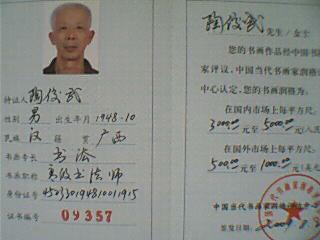 持证人 陶俊武
性别 男 出生年月 1948·10
民族 汉 籍贯 广西
书画专长 书法
书画职称 高级书法师
身份证号
证书编号 09357
陶俊武 先生/女士
您的书画作品经中国书
家评议,中国当代书画家润格
中心认定,您的书画润格为:
在国内市场上每平方尺
3000.00 元至 5000.00 元(人民
在国外市场上每平方尺
500.00 元至 1000.00 元(美
中国当代书画家润格